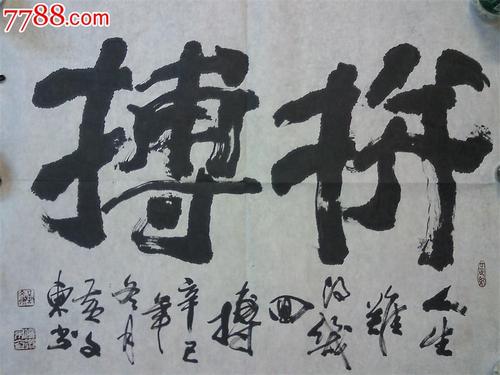 7788.com
拼搏
人生
難
得幾
回
搏
辛巳
年
冬月
黄文
東书